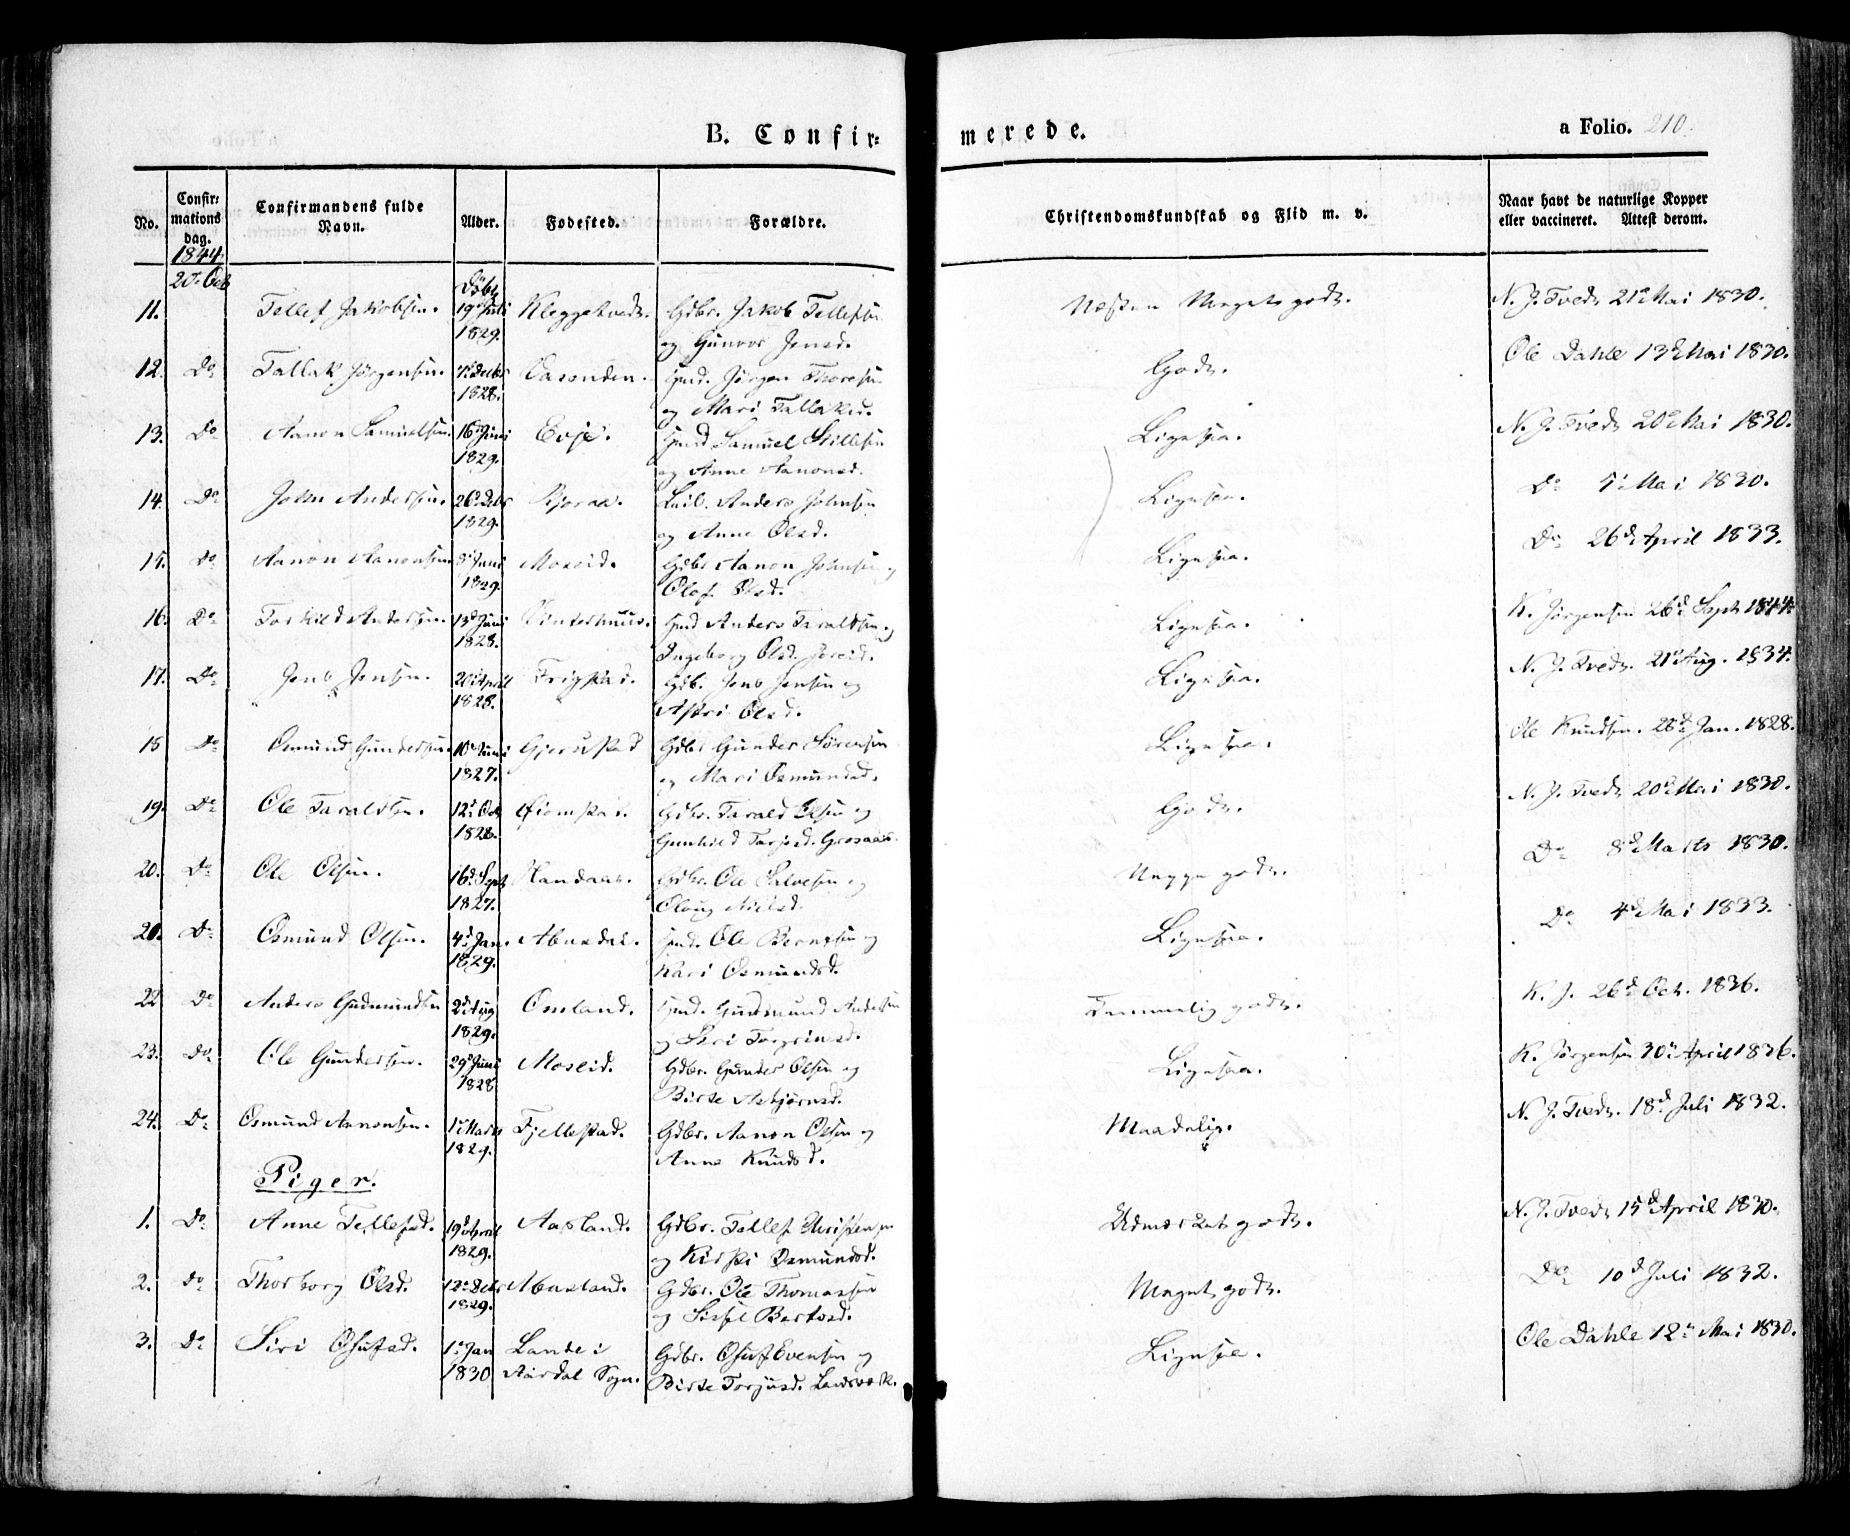 B. Confir=
merede.
a Folio. 210.
No.
Confir=
mations
dag.
Confirmandens fulde
Navn.
Alder.
Fødested.
Forældre.
Christendomskundskab og Flid m. v.
Naar havt de naturlige Kopper
eller vaccineret. Attest derom.
1844
20. Oct
11. Tellef Jakobsen. Døbt 19d Juli 1829. Gdbr. Jakob Tellefsen og Gunvor Jensd. Næsten Meget godt. N. J. Tvedt 21d Mai 1830.
12. Do Tallak Jørgensen. 1828. Hmd. Jørgen Thoresen og Mari Tallaksd. Godt. Ole Dahle 13d Mai 1830.
13. Do Aanon Samuelsen. 16d Juni 1829. Evje. Hmd Samuel og Anne Aanonsd. Ligesaa. N. J. Tvedt 20d Mai 1830.
14. Do John Andersen. 1829. Anders Johnsen og Anne Olsd. Ligesaa. Do Mai 1830.
15. Do Aanon Aanonsen 8d Juni 1829. Moseid. Gdbr Aanon Johnsen og Olsd. Ligesaa. Do 26d April 1833.
16. Do Torkild Andersen. 13d Juni 1828. Hmd Anders Taraldsen og Ingeborg Olsd. Ligesaa. K. Jørgensen 26d Sept 1844.
17. Do Jens Jensen. 20d April 1828. Frigstad. Gdb. Jens Jensen og Astri Olsd. Ligesaa. N. J. Tvedt. 21d Aug. 1834.
18 Do Osmund Gundersen. 10d Juni 1827. Gjerustad Gdbr Gunder Sørensen og Mari Osmundsd. Ligesaa. Ole Knudsen. 28d Jan. 1828.
19. Do Ole Taraldsen. 12d Oct 1828. Gdbr. Tarald Olsen og Gunhild Torjusd. Grosaas. Godt. N. J. Tvedt 20d Mai 1830.
20. Do Ole Olsen. 16d Sept 1827. Handaas. Gdbr. Ole Salvesen og Oloug Nielsd. Meget godt. Do 8d Marts 1830.
20. Do Osmund Olsen. 4d Jan. 1829. Abusdal. Hmd. Ole Berntsen og Kari Osmundsd. Ligesaa. Do 4d Mai 1833.
22 Do Anders Gudmundsen 2d Aug 1829. Omland. Hmd. Gudmund Andersen og Siri Torgrimsd. Temmelig godt. K. J. 26d Oct. 1836.
23. Do Ole Gundersen. 29d Juni 1828 Moseid. Gdbr. Gunder Olsen og Birte Asbjørnsd. Ligesaa. K. Jørgensen 30d April 1836.
24. Do Osmund Aanonsen. 1d Marts 1829. Fjellestad. Gdbr. Aanon Olsen og Anne Knudsd. Maadelig. N. J. Tvedt. 18d Juli 1832.
Piger.
1. Do Anne Tellefsd. 19d April 1829. Aasland. Gdbr. Tellef Christensen og Kirsti Osmundsd. Udmærket godt. N. J. Tvedt 15d April 1830.
2. Do Thorborg Olsd. 12d Decbr 1829. Abusland. Gdbr. Ole Thomassen og Sissel Bertosd. Meget godt. Do 10d Juli 1832.
3. Do Siri Osufsd. 1d Jan 1830 Lande i Aardal Sogn. Gdbr. Osuf Evensen og Birte Torjusd. Landsværk. Ligesaa. Ole Dahle 12d Mai 1830.